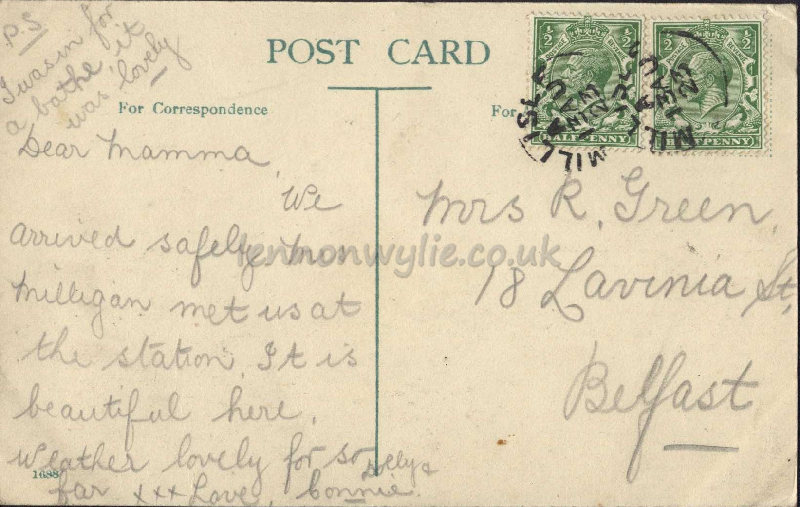 P.S
I was in for
a bathe it
was lovely
POST CARD
For Correspondence
For
Dear Mamma,
We
arrived safely. Mrs
Milligan met us at
the station. It is
beautiful here.
Weather lovely for so
far xxx Love,
Dolly &
Connie.
1688
Mrs R. Green,
18 Lavinia St,
Belfast
½ ½
HALFPENNY
½ ½
PENNY
MILLISLE
AU
23
MILLISLE
AU
23
lennonwylie.co.uk